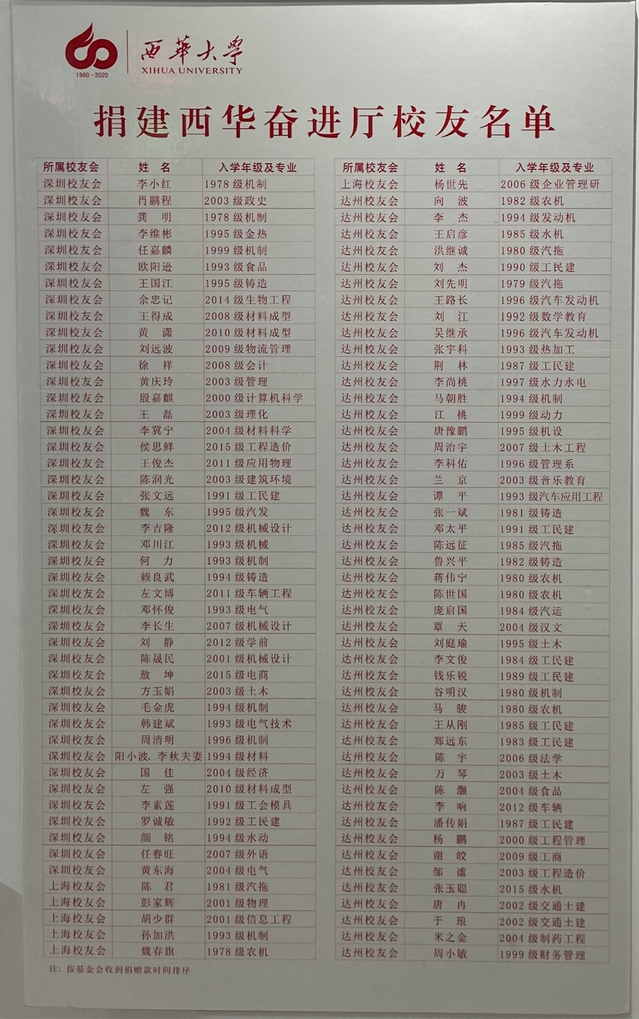 1960-2020
西华大学
XIHUA UNIVERSITY
捐建西华奋进厅校友名单
所属校友会 姓 名 入学年级及专业
深圳校友会 李小红 1978 级机制
深圳校友会 肖鹏程 2003 级政史
深圳校友会 龚 明 1978 级机制
深圳校友会 李维彬 1995 级金热
深圳校友会 任嘉麟 1999 级机制
深圳校友会 欧阳逊 1993 级食品
深圳校友会 王国江 1995 级铸造
深圳校友会 余忠记 2014 级生物工程
深圳校友会 王得成 2008 级材料成型
深圳校友会 黄 潇 2010 级材料成型
深圳校友会 刘远波 2009 级物流管理
深圳校友会 徐 祥 2008 级会计
深圳校友会 黄庆玲 2003 级管理
深圳校友会 殷嘉麒 2000 级计算机科学
深圳校友会 王 磊 2003 级理化
深圳校友会 李冀宁 2004 级材料科学
深圳校友会 侯思鲜 2015 级工程造价
深圳校友会 王俊杰 2011 级应用物理
深圳校友会 陈润光 2003 级建筑环境
深圳校友会 张文远 1991 级工民建
深圳校友会 魏 东 1995 级汽发
深圳校友会 李吉隆 2012 级机械设计
深圳校友会 邓川江 1993 级机械
深圳校友会 何 力 1993 级机制
深圳校友会 赖良武 1994 级铸造
深圳校友会 左文博 2011 级车辆工程
深圳校友会 邓怀俊 1993 级电气
深圳校友会 李长生 2007 级机械设计
深圳校友会 刘 静 2012 级学前
深圳校友会 陈晟民 2001 级机械设计
深圳校友会 敖 坤 2015 级电商
深圳校友会 方玉娟 2003 级土木
深圳校友会 毛金虎 1994 级机制
深圳校友会 韩建斌 1993 级电气技术
深圳校友会 周清明 1996 级机制
深圳校友会 阳小波、李秋夫妻 1994 级材料
深圳校友会 国 佳 2004 级经济
深圳校友会 左 强 2010 级材料成型
深圳校友会 李素莲 1991 级工会模具
深圳校友会 罗诚敏 1992 级工民建
深圳校友会 颜 铭 1994 级水动
深圳校友会 任春旺 2007 级外语
深圳校友会 黄东海 2004 级电气
上海校友会 陈 君 1981 级汽拖
上海校友会 彭家辉 2001 级物理
上海校友会 胡少群 2001 级信息工程
上海校友会 孙加洪 1993 级机制
上海校友会 魏春旗 1978 级农机
注：按基金会收到捐赠款时间排序
所属校友会 姓 名 入学年级及专业
上海校友会 杨世先 2006 级企业管理研
达州校友会 向 波 1982 级农机
达州校友会 李 杰 1994 级发动机
达州校友会 王启彦 1985 级水机
达州校友会 洪继诚 1980 级汽拖
达州校友会 刘 杰 1990 级工民建
达州校友会 刘先明 1979 级汽拖
达州校友会 王路长 1996 级汽车发动机
达州校友会 刘 江 1992 级数学教育
达州校友会 吴继承 1996 级汽车发动机
达州校友会 张宇科 1993 级热加工
达州校友会 荆 林 1987 级工民建
达州校友会 李尚桃 1997 级水力水电
达州校友会 马朝胜 1994 级机制
达州校友会 江 桃 1999 级动力
达州校友会 唐豫鹏 1995 级机设
达州校友会 周治宇 2007 级土木工程
达州校友会 李科佑 1996 级管理系
达州校友会 兰 京 2003 级音乐教育
达州校友会 谭 平 1993 级汽车应用工程
达州校友会 张一斌 1981 级铸造
达州校友会 邓太平 1991 级工民建
达州校友会 陈远征 1985 级汽拖
达州校友会 鲁兴平 1982 级铸造
达州校友会 蒋伟宁 1980 级农机
达州校友会 陈世国 1980 级农机
达州校友会 庞启国 1984 级汽运
达州校友会 覃 天 2004 级汉文
达州校友会 刘庭瑜 1995 级土木
达州校友会 李文俊 1984 级工民建
达州校友会 钱乐锐 1989 级工民建
达州校友会 谷明汉 1980 级机制
达州校友会 马 骏 1980 级农机
达州校友会 王从刚 1985 级工民建
达州校友会 郑远东 1983 级工民建
达州校友会 陈 宇 2006 级法学
达州校友会 万 琴 2003 级土木
达州校友会 陈 灏 2004 级食品
达州校友会 李 响 2012 级车辆
达州校友会 潘传娟 1987 级工民建
达州校友会 杨 鹏 2000 级工程管理
达州校友会 谢 皎 2009 级工商
达州校友会 邹 谧 2003 级工程造价
达州校友会 张玉聪 2015 级水机
达州校友会 唐 冉 2002 级交通土建
达州校友会 于 琅 2002 级交通土建
达州校友会 米之金 2004 级制药工程
达州校友会 周小敏 1999 级财务管理